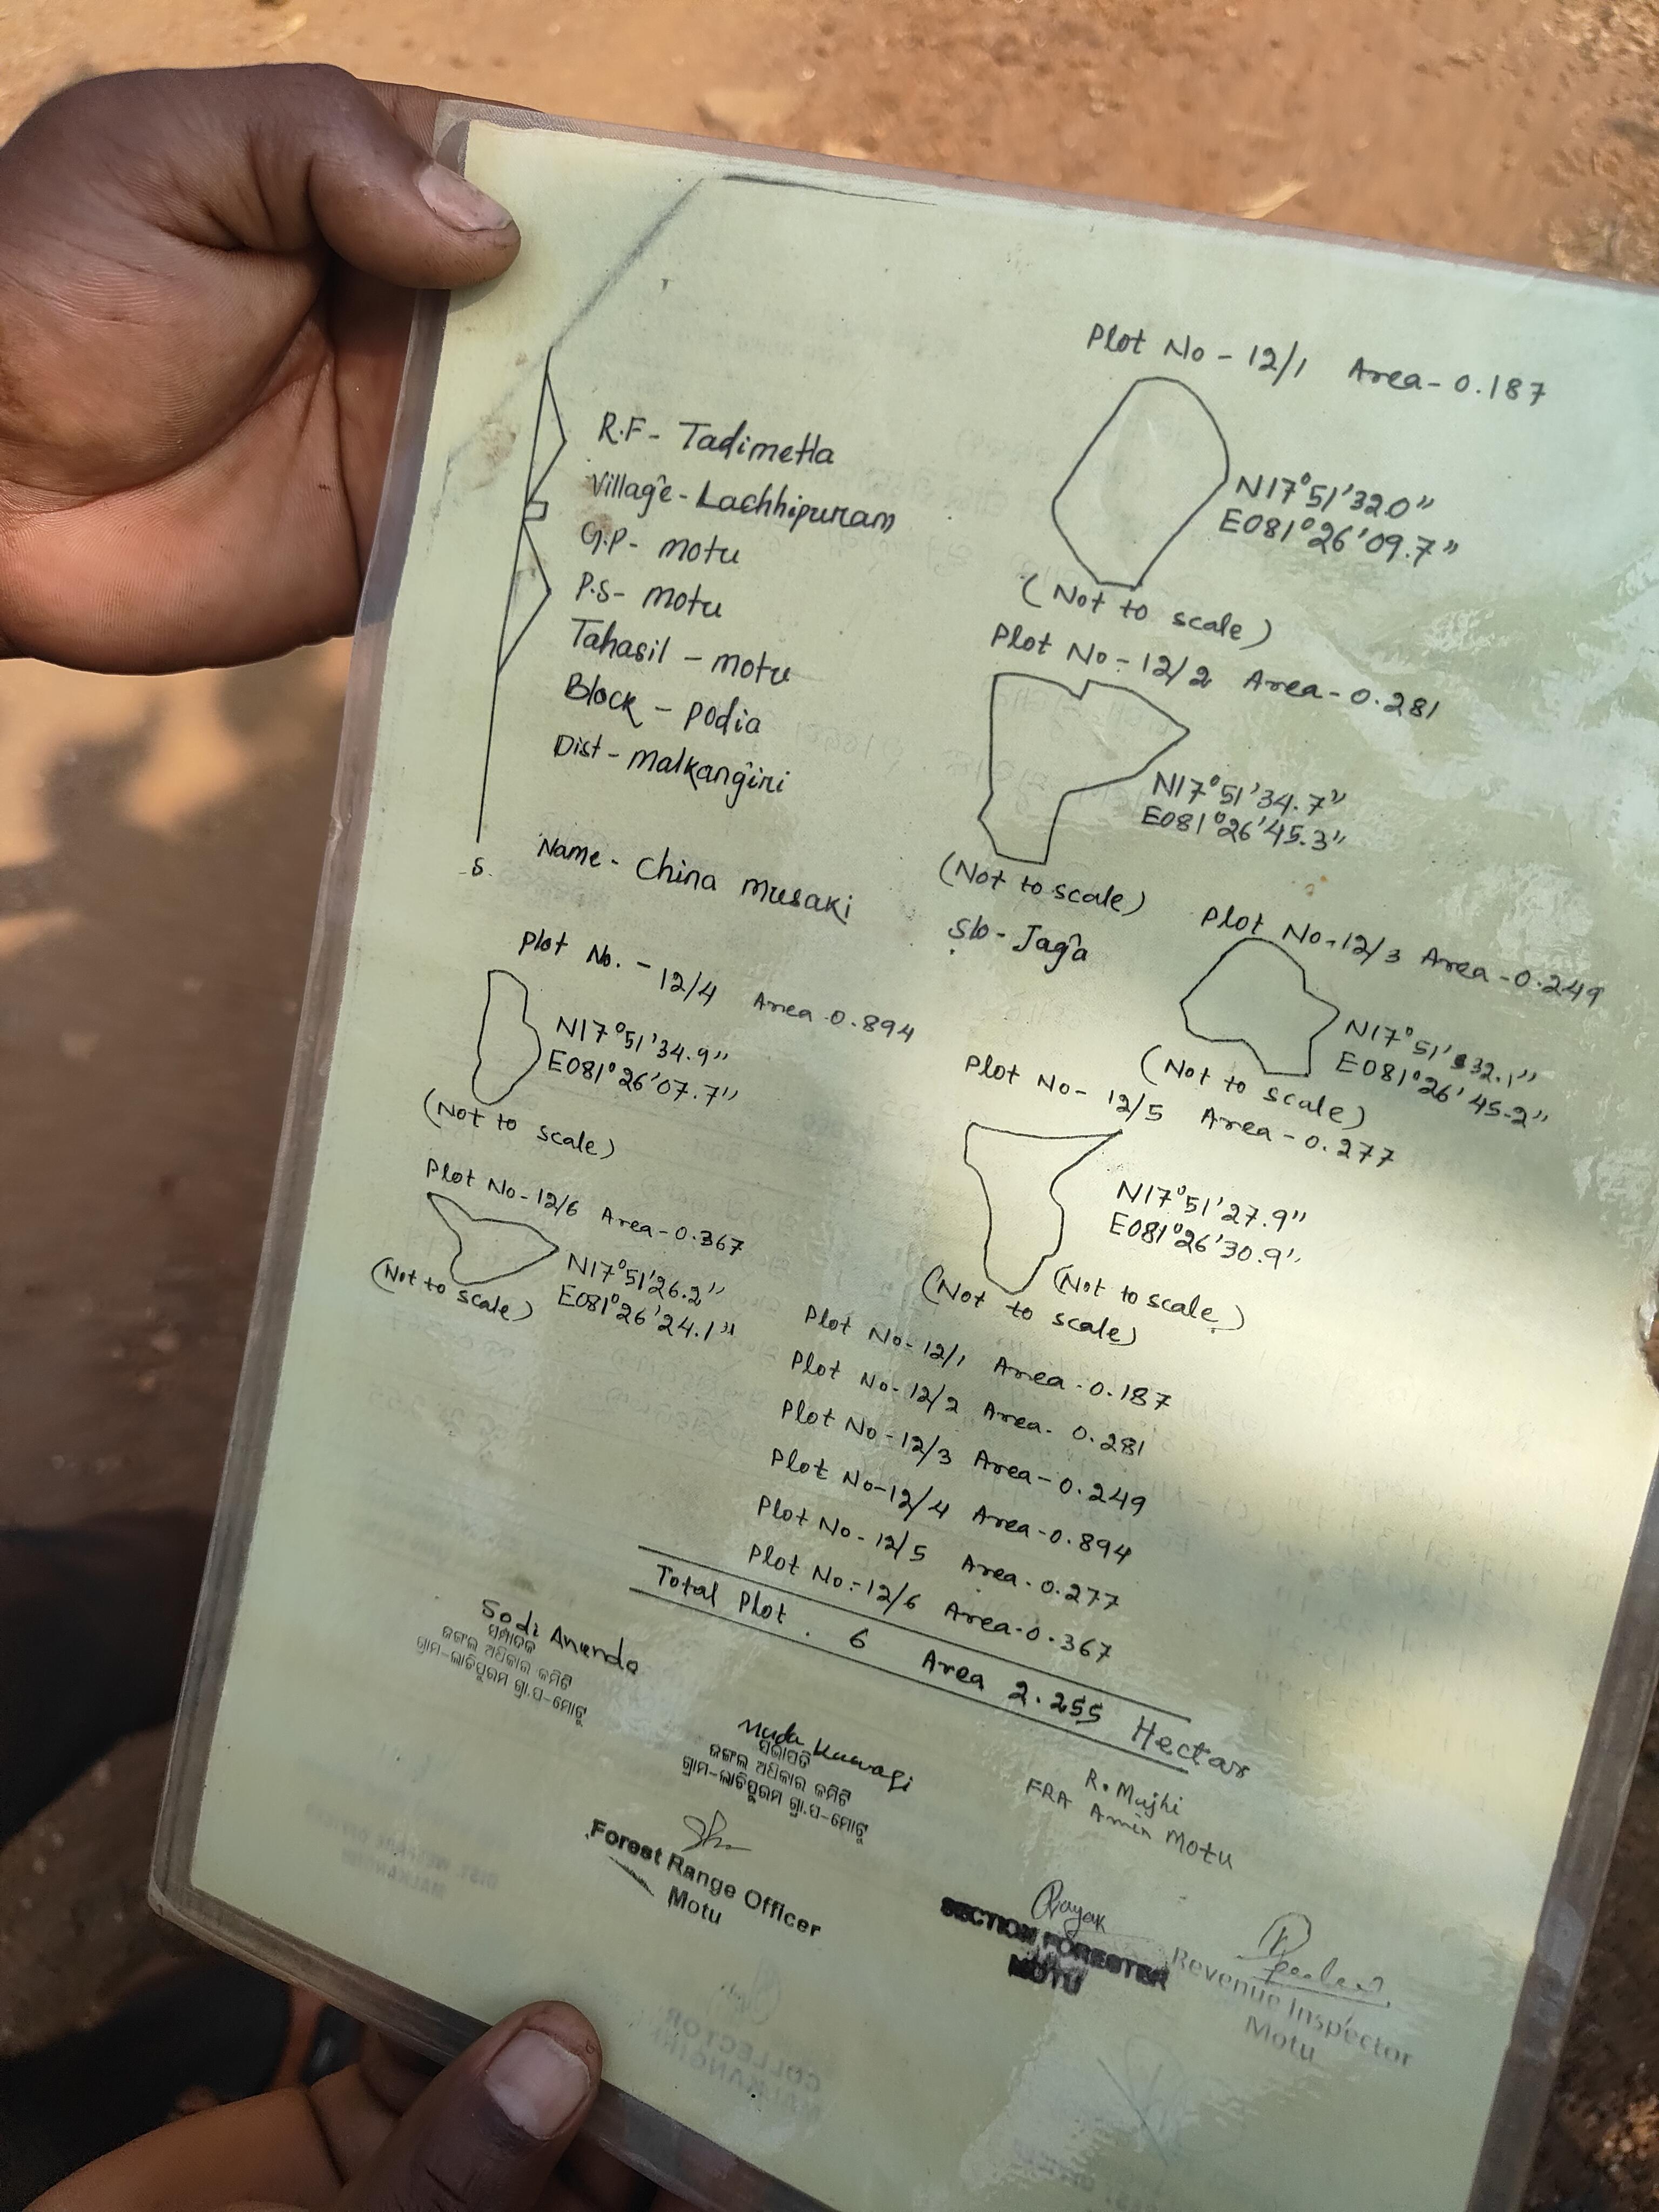 Plot No - 12/1 Area - 0.187
N17°51'32.0"
E081°26'09.7"
(Not to scale)
R.F - Tadimetta
Village - Lachhipuram
G.P - Motu
P.S - Motu
Tahasil - Motu
Block - Podia
Dist - Malkangiri
Plot No - 12/2 Area - 0.281
N17°51'34.7"
E081°26'45.3"
(Not to scale)
S.
Name - China Musaki
S/o - Jaga
Plot No - 12/3 Area - 0.249
N17°51'32.1"
E081°26'45.2"
(Not to scale)
Plot No. - 12/4 Area - 0.894
N17°51'34.9"
E081°26'07.7"
(Not to scale)
Plot No - 12/5 Area - 0.277
N17°51'27.9"
E081°26'30.9"
(Not to scale)
(Not to scale)
Plot No - 12/6 Area - 0.367
N17°51'26.2"
E081°26'24.1"
(Not to scale)
Plot No - 12/1 Area - 0.187
Plot No - 12/2 Area - 0.281
Plot No - 12/3 Area - 0.249
Plot No - 12/4 Area - 0.894
Plot No - 12/5 Area - 0.277
Plot No - 12/6 Area - 0.367
Total Plot. 6 Area 2.255 Hectar
Sodi Ananda
ସମ୍ପାଦକ
ଜଙ୍ଗଲ ଅଧିକାର କମିଟି
ଗ୍ରାମ-ଲାଚିପୁରମ ଗ୍ରା.ପ-ମୋଟୁ
Muda
ସଭାପତି
ଜଙ୍ଗଲ ଅଧିକାର କମିଟି
ଗ୍ରାମ-ଲାଚିପୁରମ ଗ୍ରା.ପ-ମୋଟୁ
R. Majhi
FRA Amin Motu
Forest Range Officer
Motu
SECTION FORESTER
MOTU
Revenue Inspector
Motu
COLLECTOR
MALKANGIRI